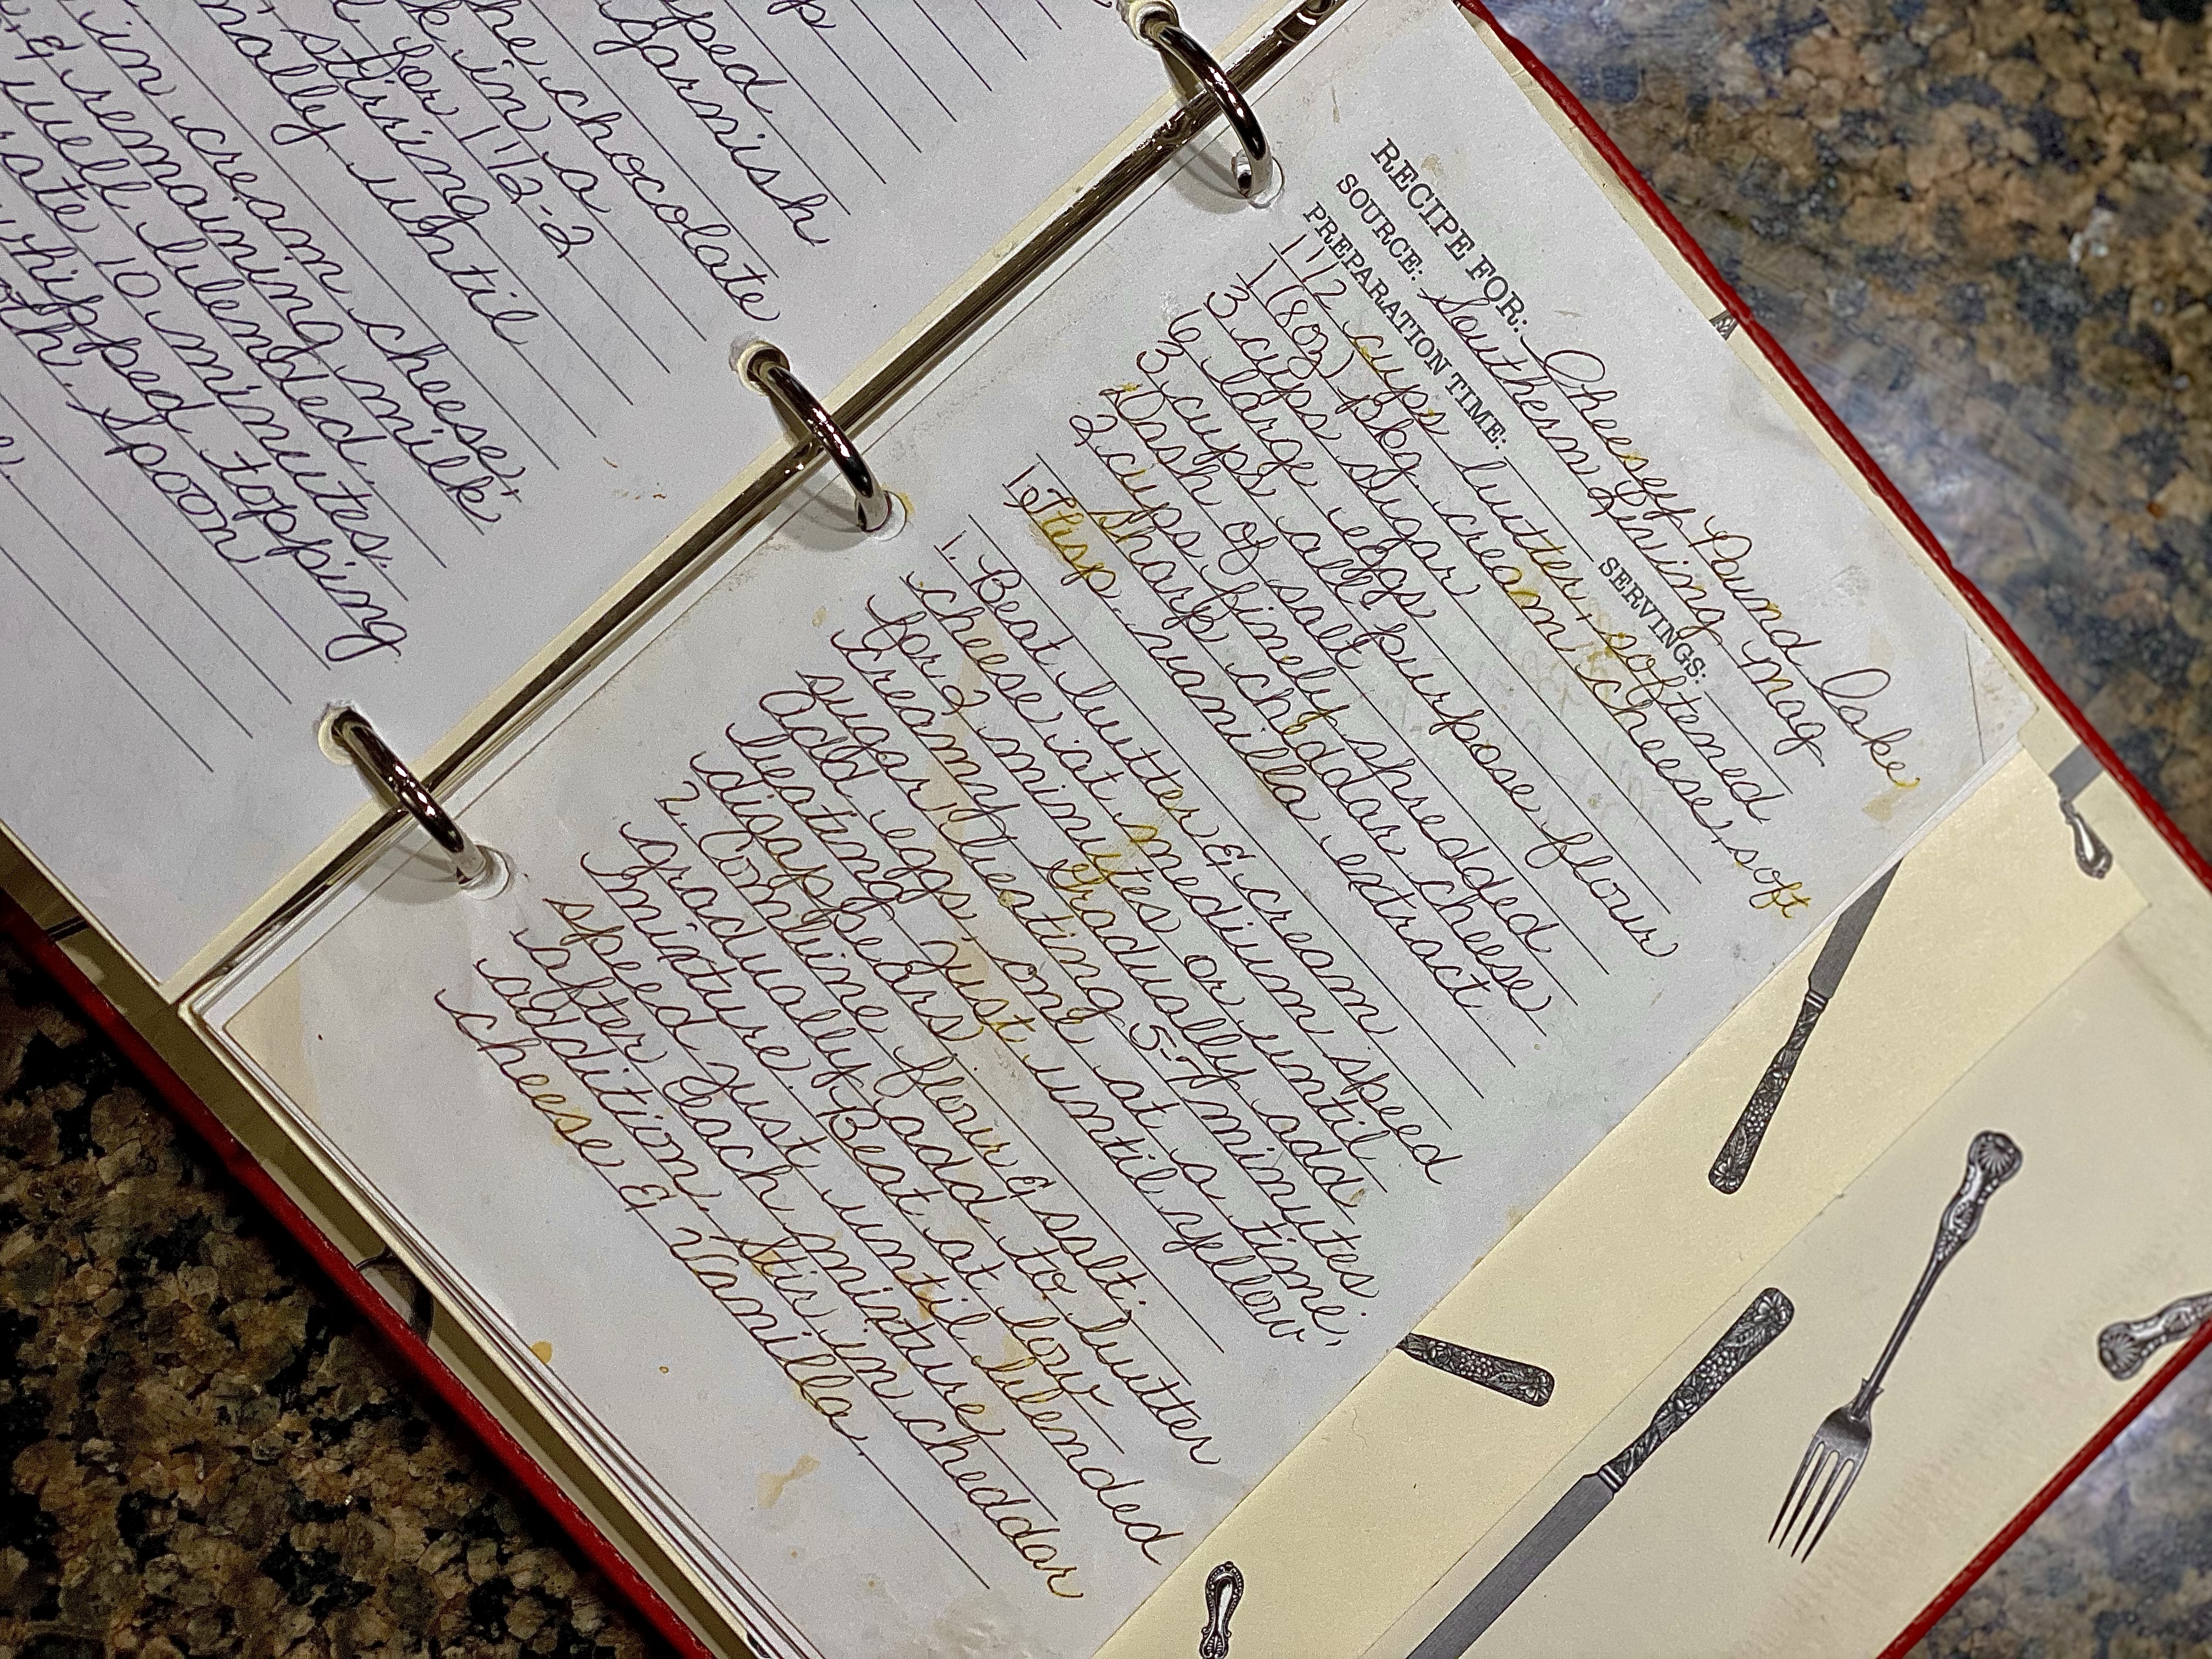 p
ped
garnish
he chocolate
k in a
for 1 1/2-2
stirring
nally until
in cream cheese,
& remaining milk
well blended.
rate 10 minutes.
whipped topping
oth. Spoon
RECIPE FOR: Cheesey Pound Cake
SOURCE: Southern Living Mag
PREPARATION TIME: SERVINGS:
1 1/2 cups butter, softened
1 (8oz) pkg cream cheese, soft
3 cups sugar
6 large eggs
3 cups all purpose flour
Dash of salt
2 cups finely shredded
sharp cheddar cheese
1 Tbsp. vanilla extract
1. Beat butter & cream
cheese at medium speed
for 2 minutes or until
creamy. Gradually add
sugar, beating 5-7 minutes.
Add eggs, one at a time,
beating just until yellow
disappears
2. Combine flour & salt;
gradually add to butter
mixture. Beat at low
speed just until blended
after each mixture
addition. Stir in cheddar
cheese & Vanilla.